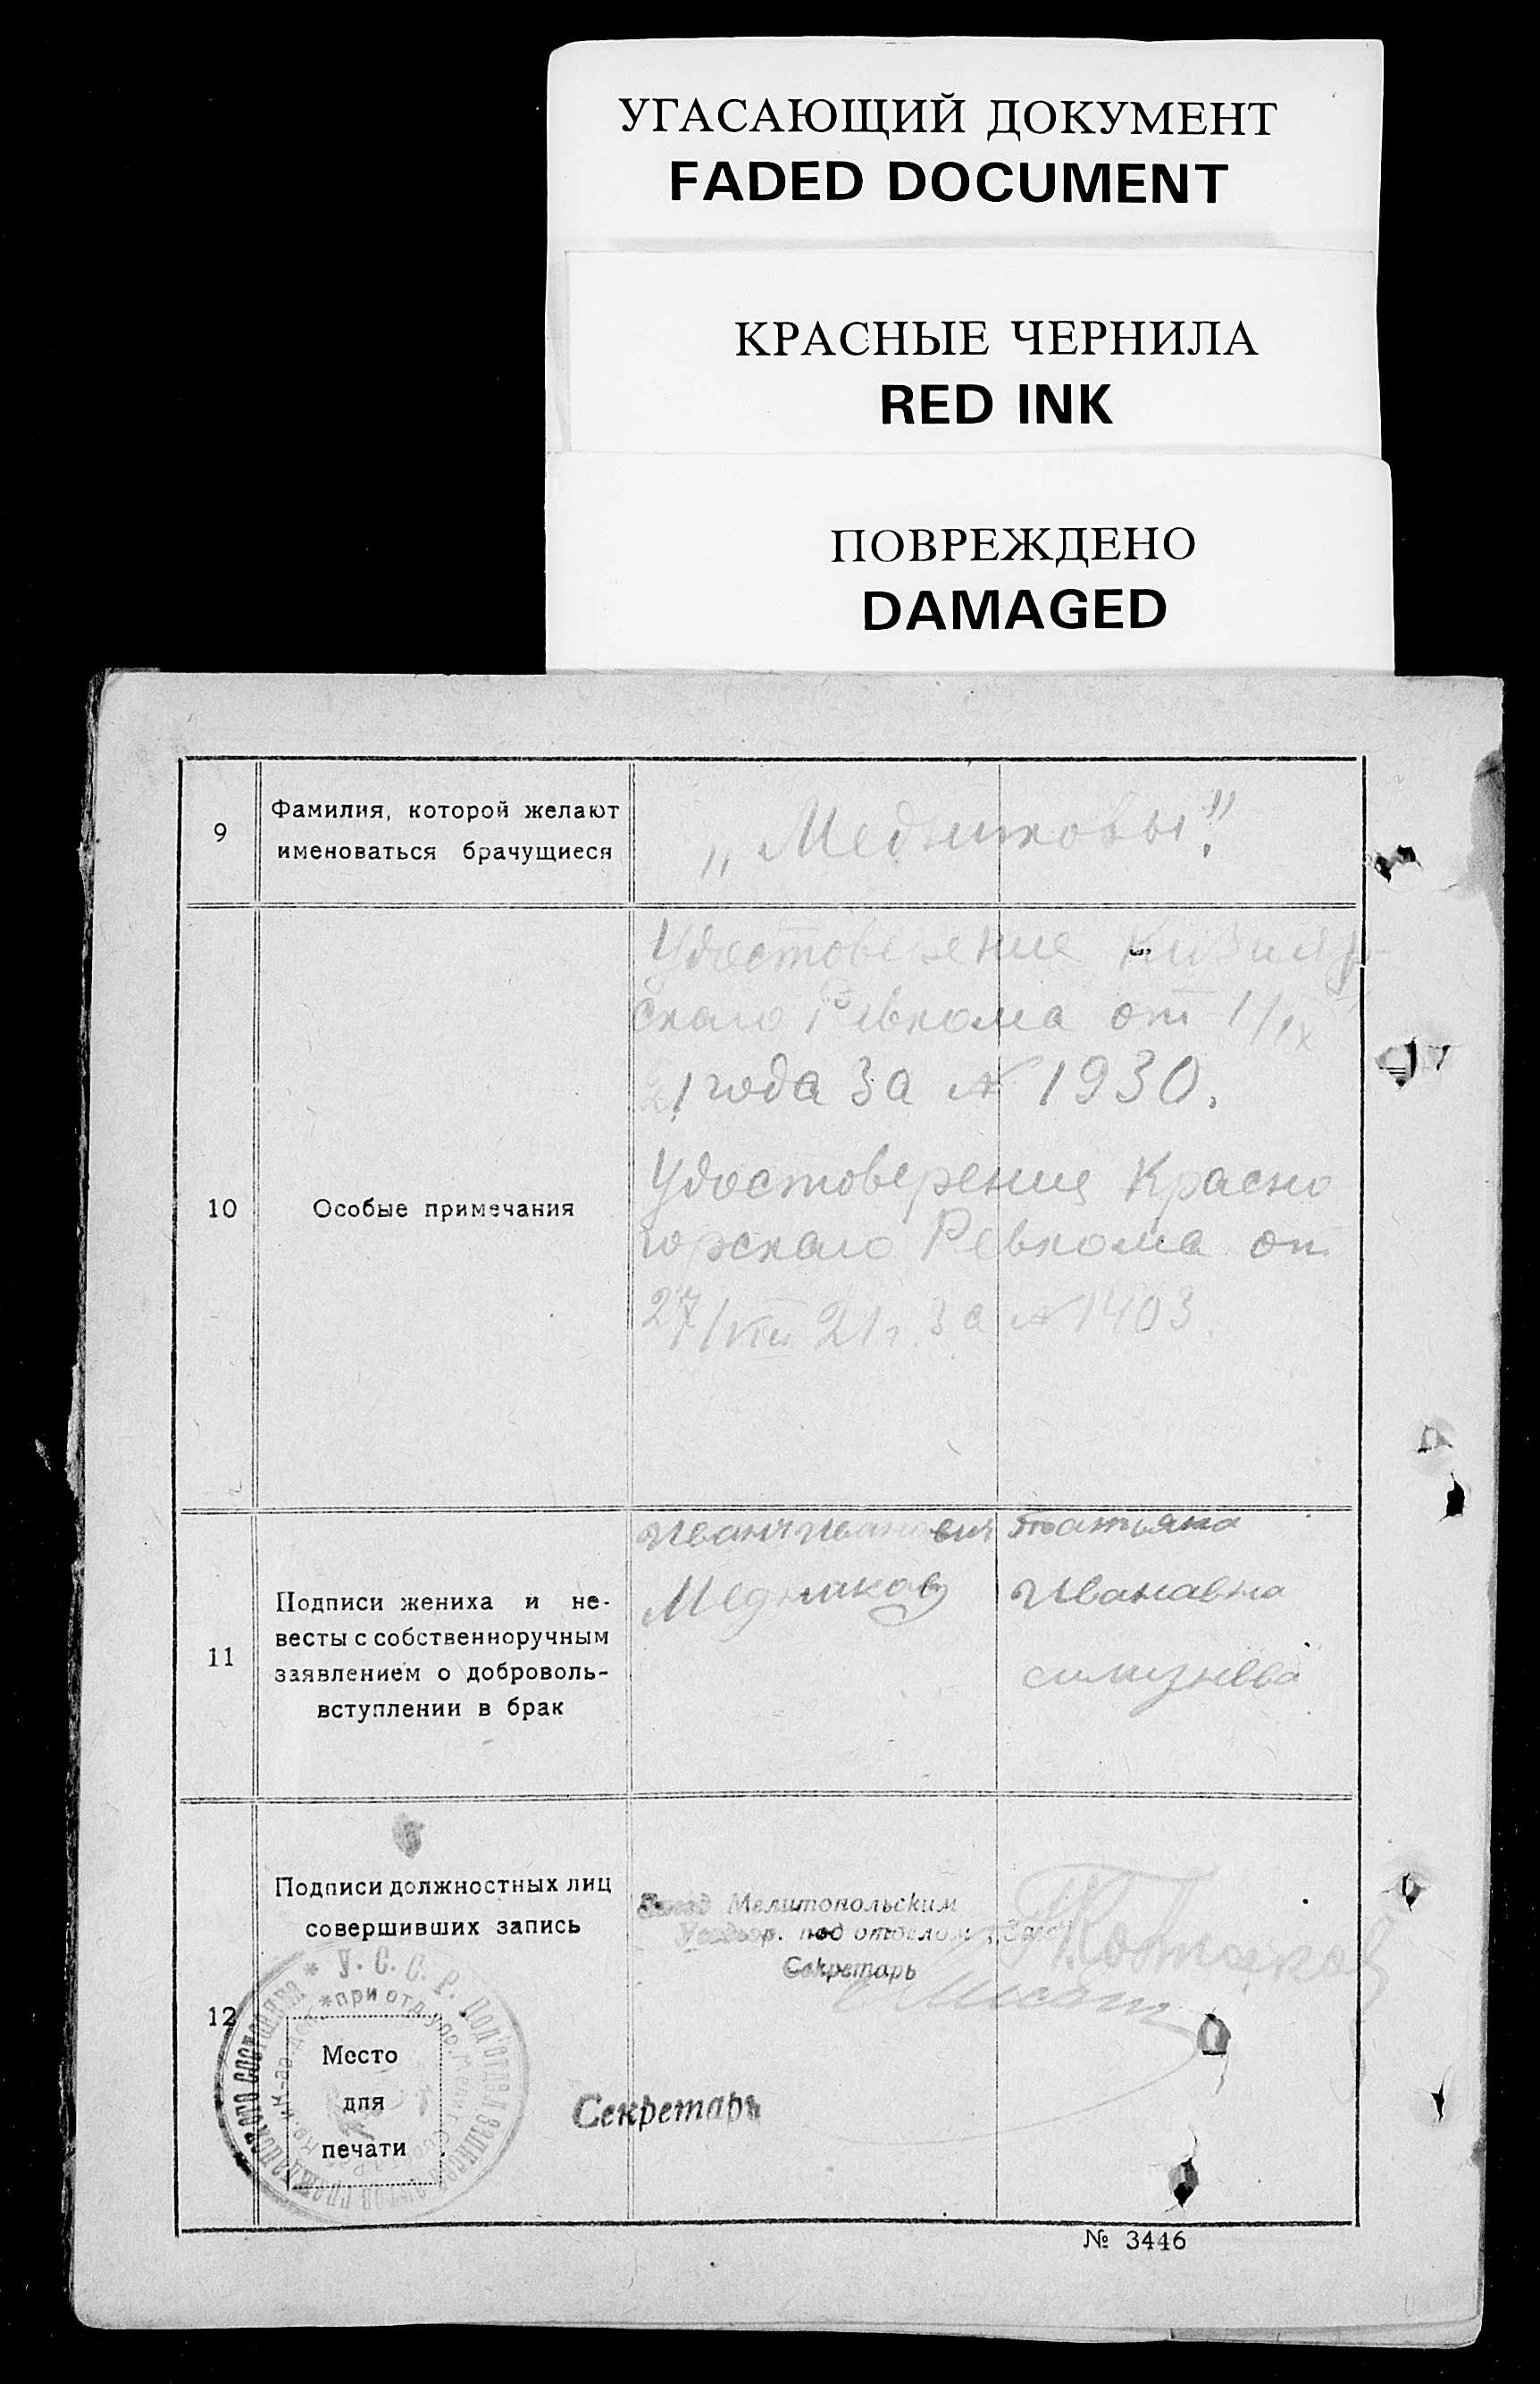 УГАСАЮЩИЙ ДОКУМЕНТ
FADED DOCUMENT
КРАСНЫЕ ЧЕРНИЛА
RED INK
ПОВРЕЖДЕНО
DAMAGED
9
Фамилия, которой желают
именоваться брачущиеся
„Медниковы".
10
Особые примечания
Удостоверение Кизияр-
скаго Ревкома от 1/IX
21 года за № 1930.
Удостоверения Красно
горскаго Ревкома от
27/VIII 21 г. за № 1403.
11
Подписи жениха и не-
весты с собственноручным
заявлением о доброволь-
вступлении в брак
Иван Иванович
Медников
Татьяна
Ивановна
12
Подписи должностных лиц
совершивших запись
Завед Мелитопольским
под отделом
Секретарь
* У. С. С. Р. Под'отдел записей актов гражданского состояния
*при
Место
для
печати
Секретарь
№ 3446